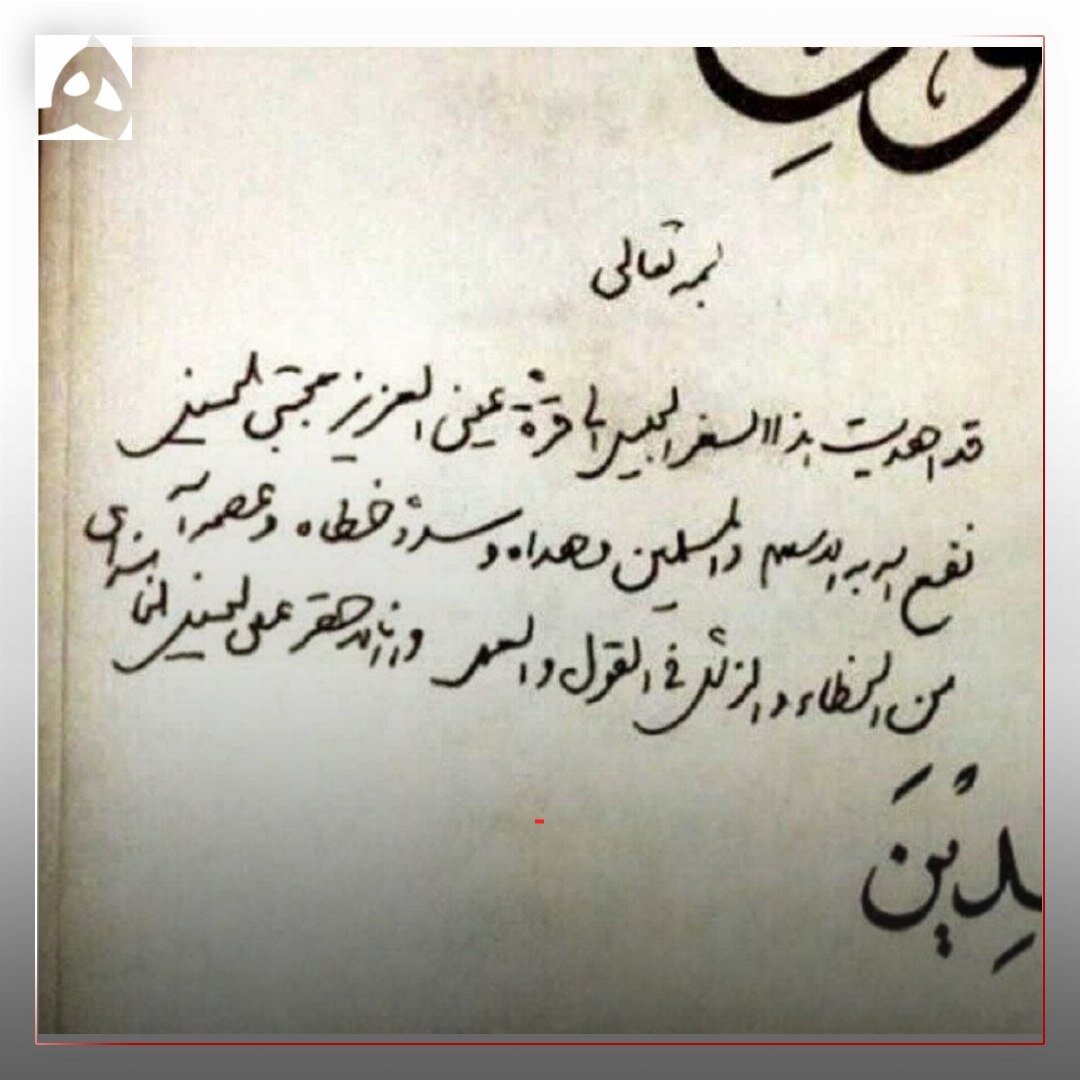 بسمه تعالی
قد اهدیت هذا السفر الجلیل الی قرّة عینی العزیز مجتبی الحسینی
نفع الله به الاسلام والمسلمین وهداه وسدّد خطاه وعصمه الله
من الخطاء والزلل فی القول والعمل وانا الاحقر علی الحسینی الخامنه‌ای
لِدِينَ